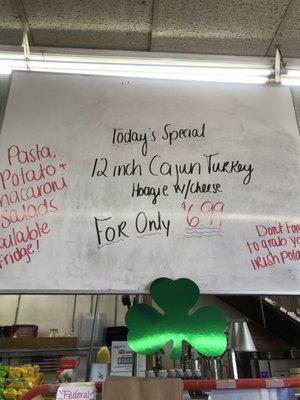 Today's Special
12 inch Cajun Turkey
Hoagie w/cheese
For Only $6.99
Pasta,
Potato +
macaroni
Salads
Fridge!
Don't
to grab
Irish
Federal